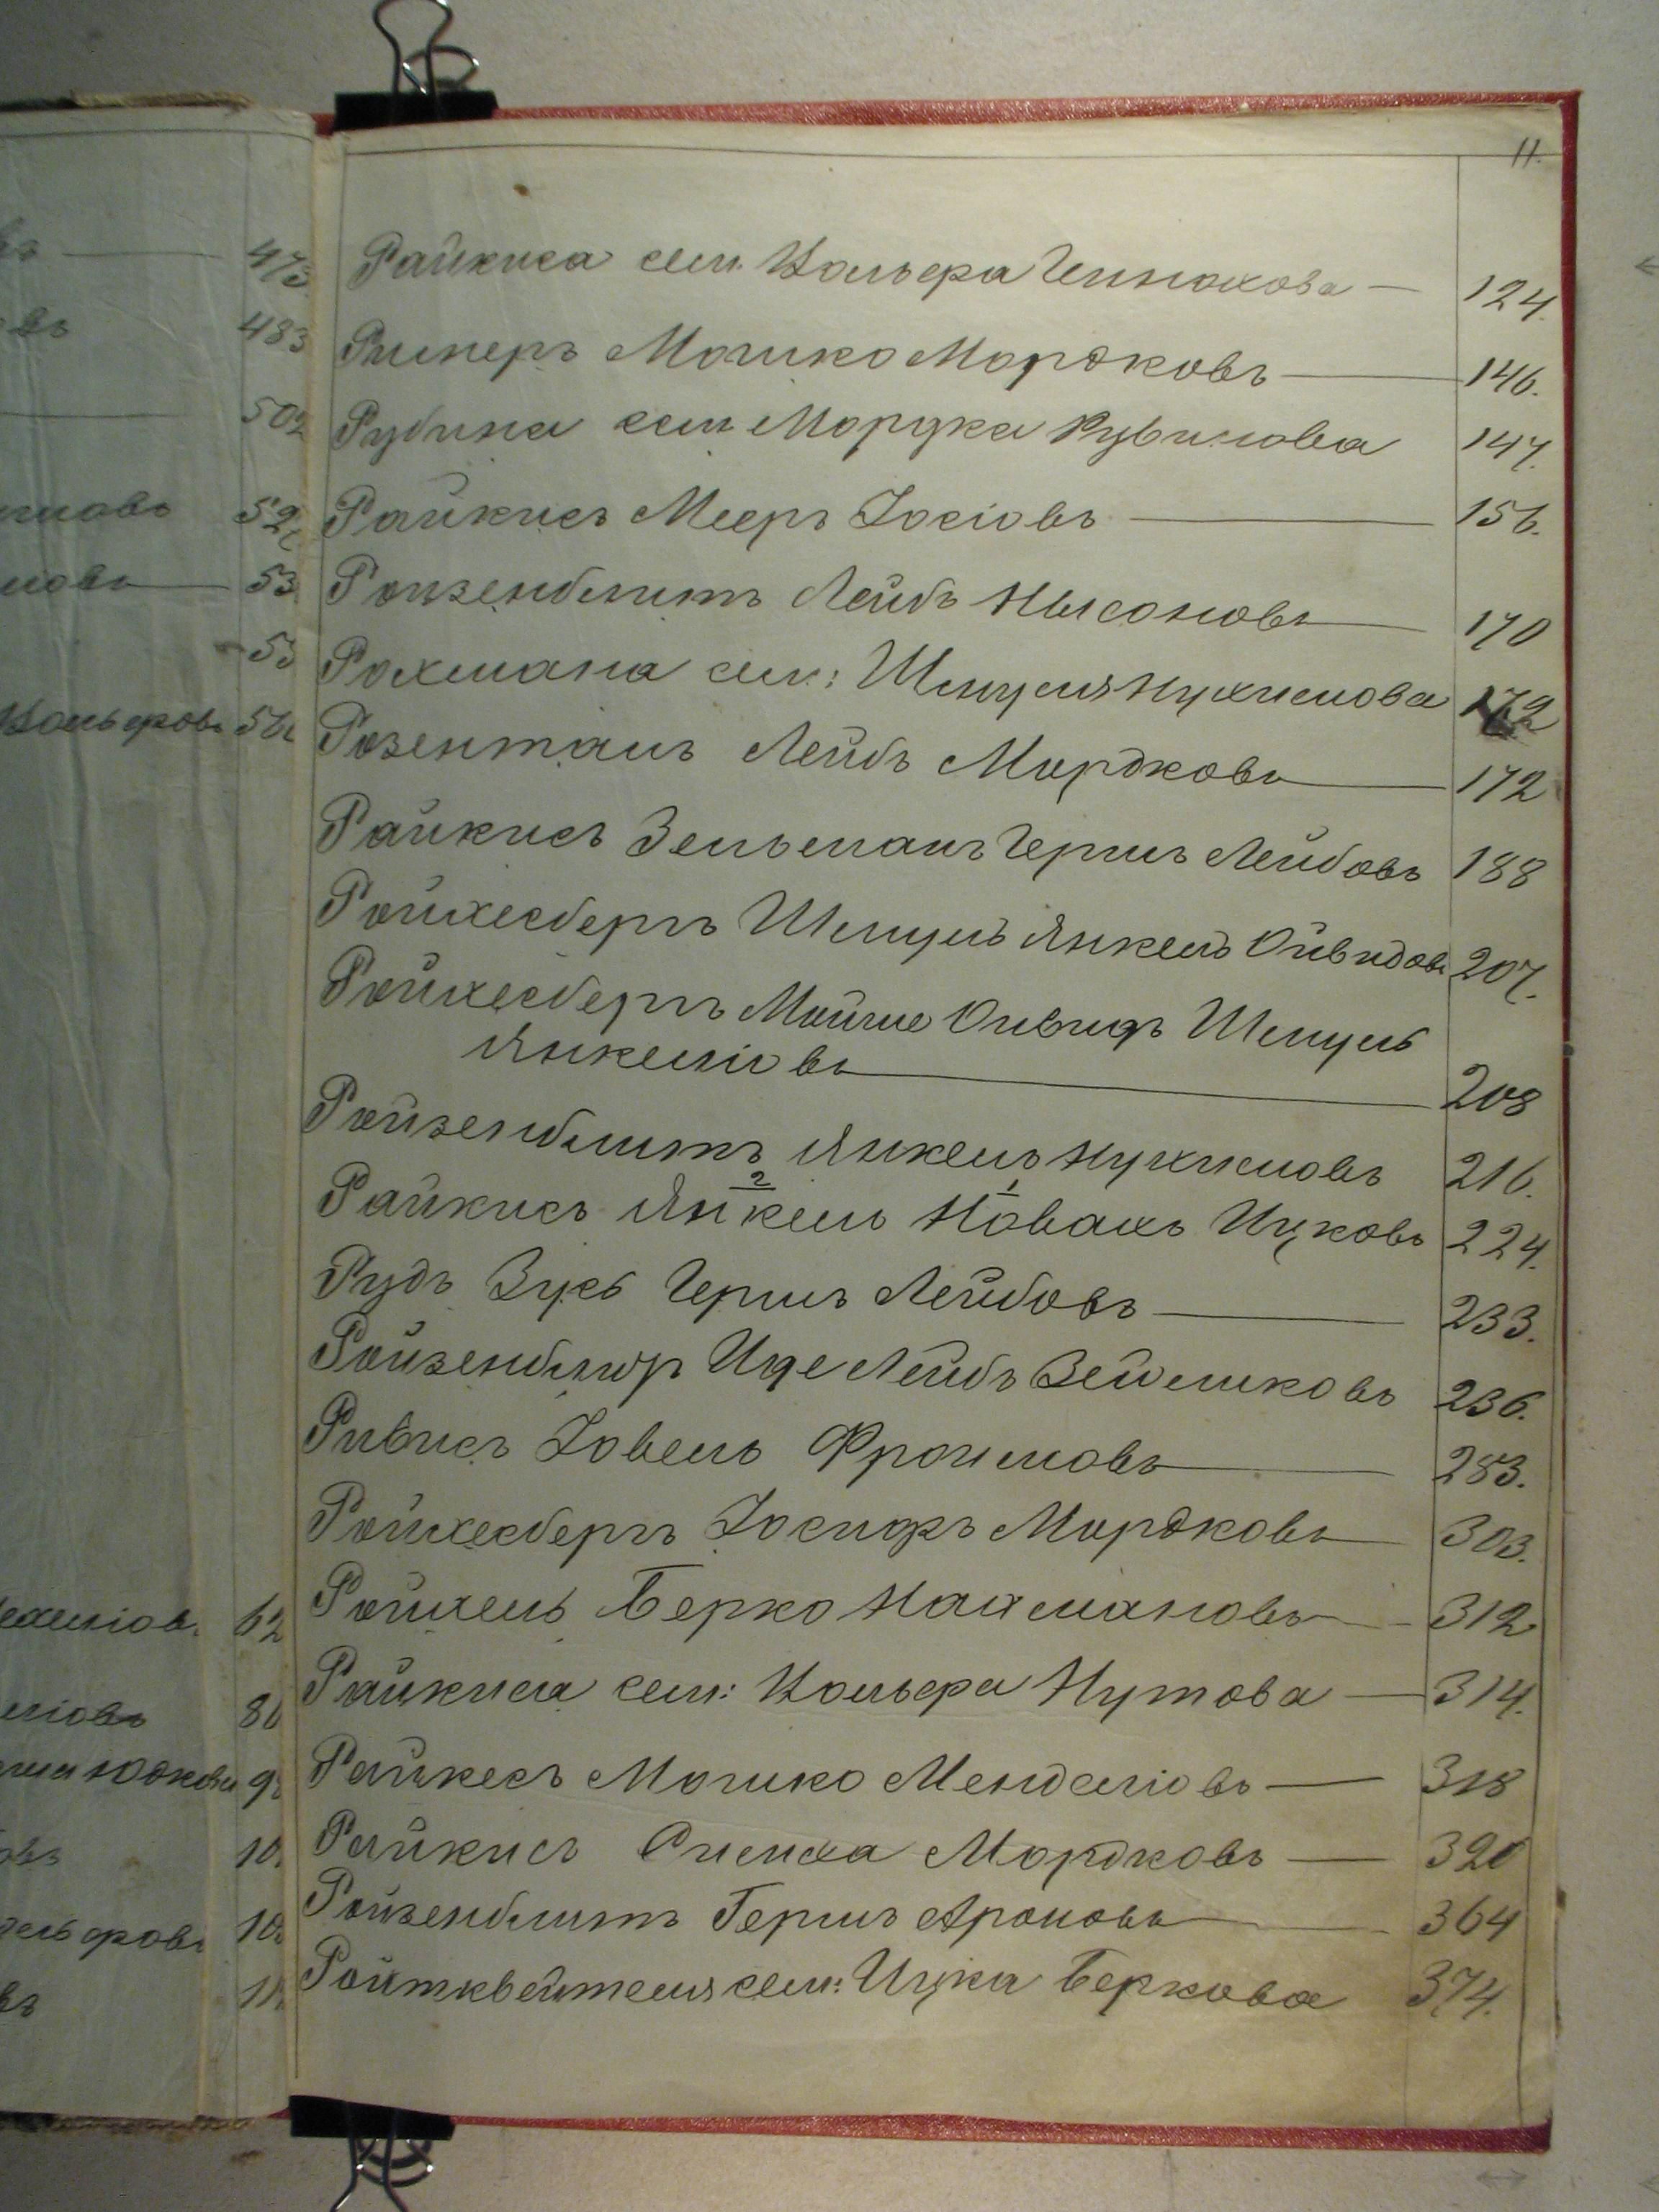 11.
Райкиса сем. Вольфа Геннахова — 124.
Ринеръ Мошко Мордковъ — 146.
Рубина сем Мордка Рувинова 147.
Райкисъ Мееръ Іосіовъ — 156.
Ройзенблитъ Лейбъ Нысоновъ — 170
Рахмана сем: Шмуля Нухимова 172
Розенталь Лейбъ Мордковъ — 172
Райкисъ Зельманъ Гершъ Лейбовъ 188
Ройхесбергъ Шмуль Янкель Ойвидовъ 207.
Ройхесбергъ Мойше Ойвидъ Шмуль
Янкеліовъ — 208
Ройзенблитъ Янкель Нухимовъ 216.
2 1
Райкисъ Янкель Новахъ Ицковъ 224.
Рудь Зусь Гершъ Лейбовъ — 233.
Ройзенблюр Иде Лейбъ Зейликовъ 236.
Ривисъ Іовель Фроимовъ — 283.
Ройхесбергъ Іосифъ Мордковъ — 303.
Ройхель Берко Нахмановъ — 312
Райкиса сем: Вольфа Нутова — 314.
Райкесъ Мошко Менделіовъ — 318
Райкисъ Симха Мордковъ — 320
Ройзенблитъ Гершъ Ароновъ — 364
Ройтквейтеля сем: Ицка Беркова 374.
483
502
Вольфовъ
62